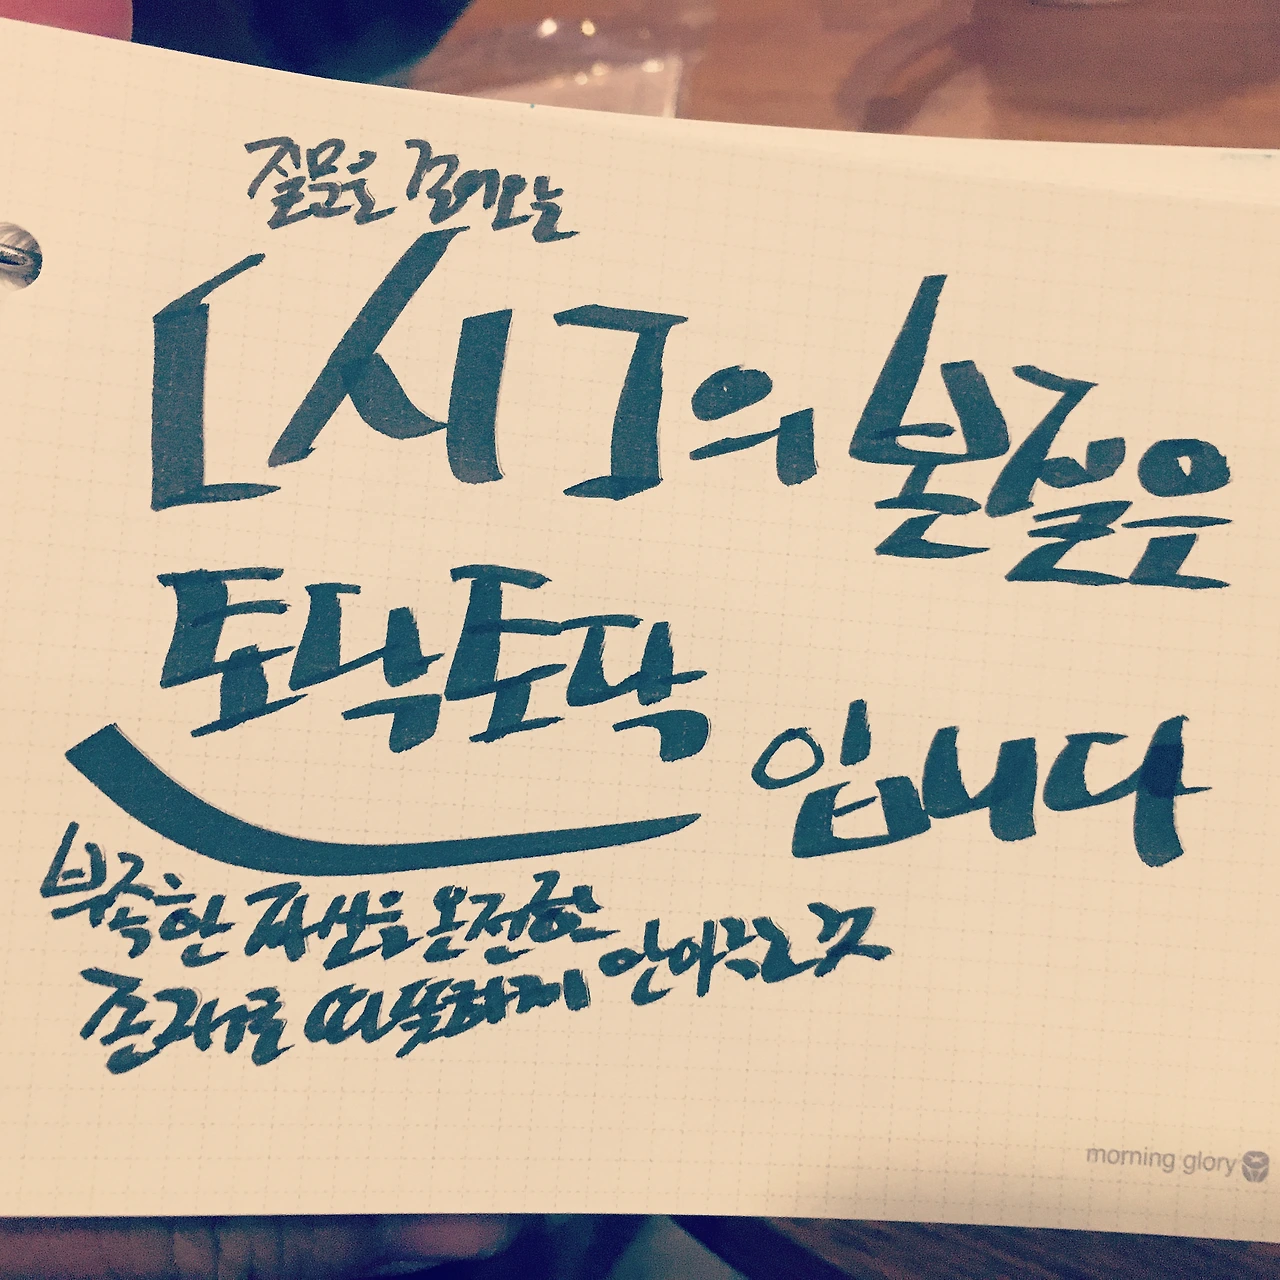 질문을 걸어오는
[시]의 본질은
토닥토닥
입니다
부족한 자신을 온전한
존재로 따뜻하게 안아주는 것
morning glory